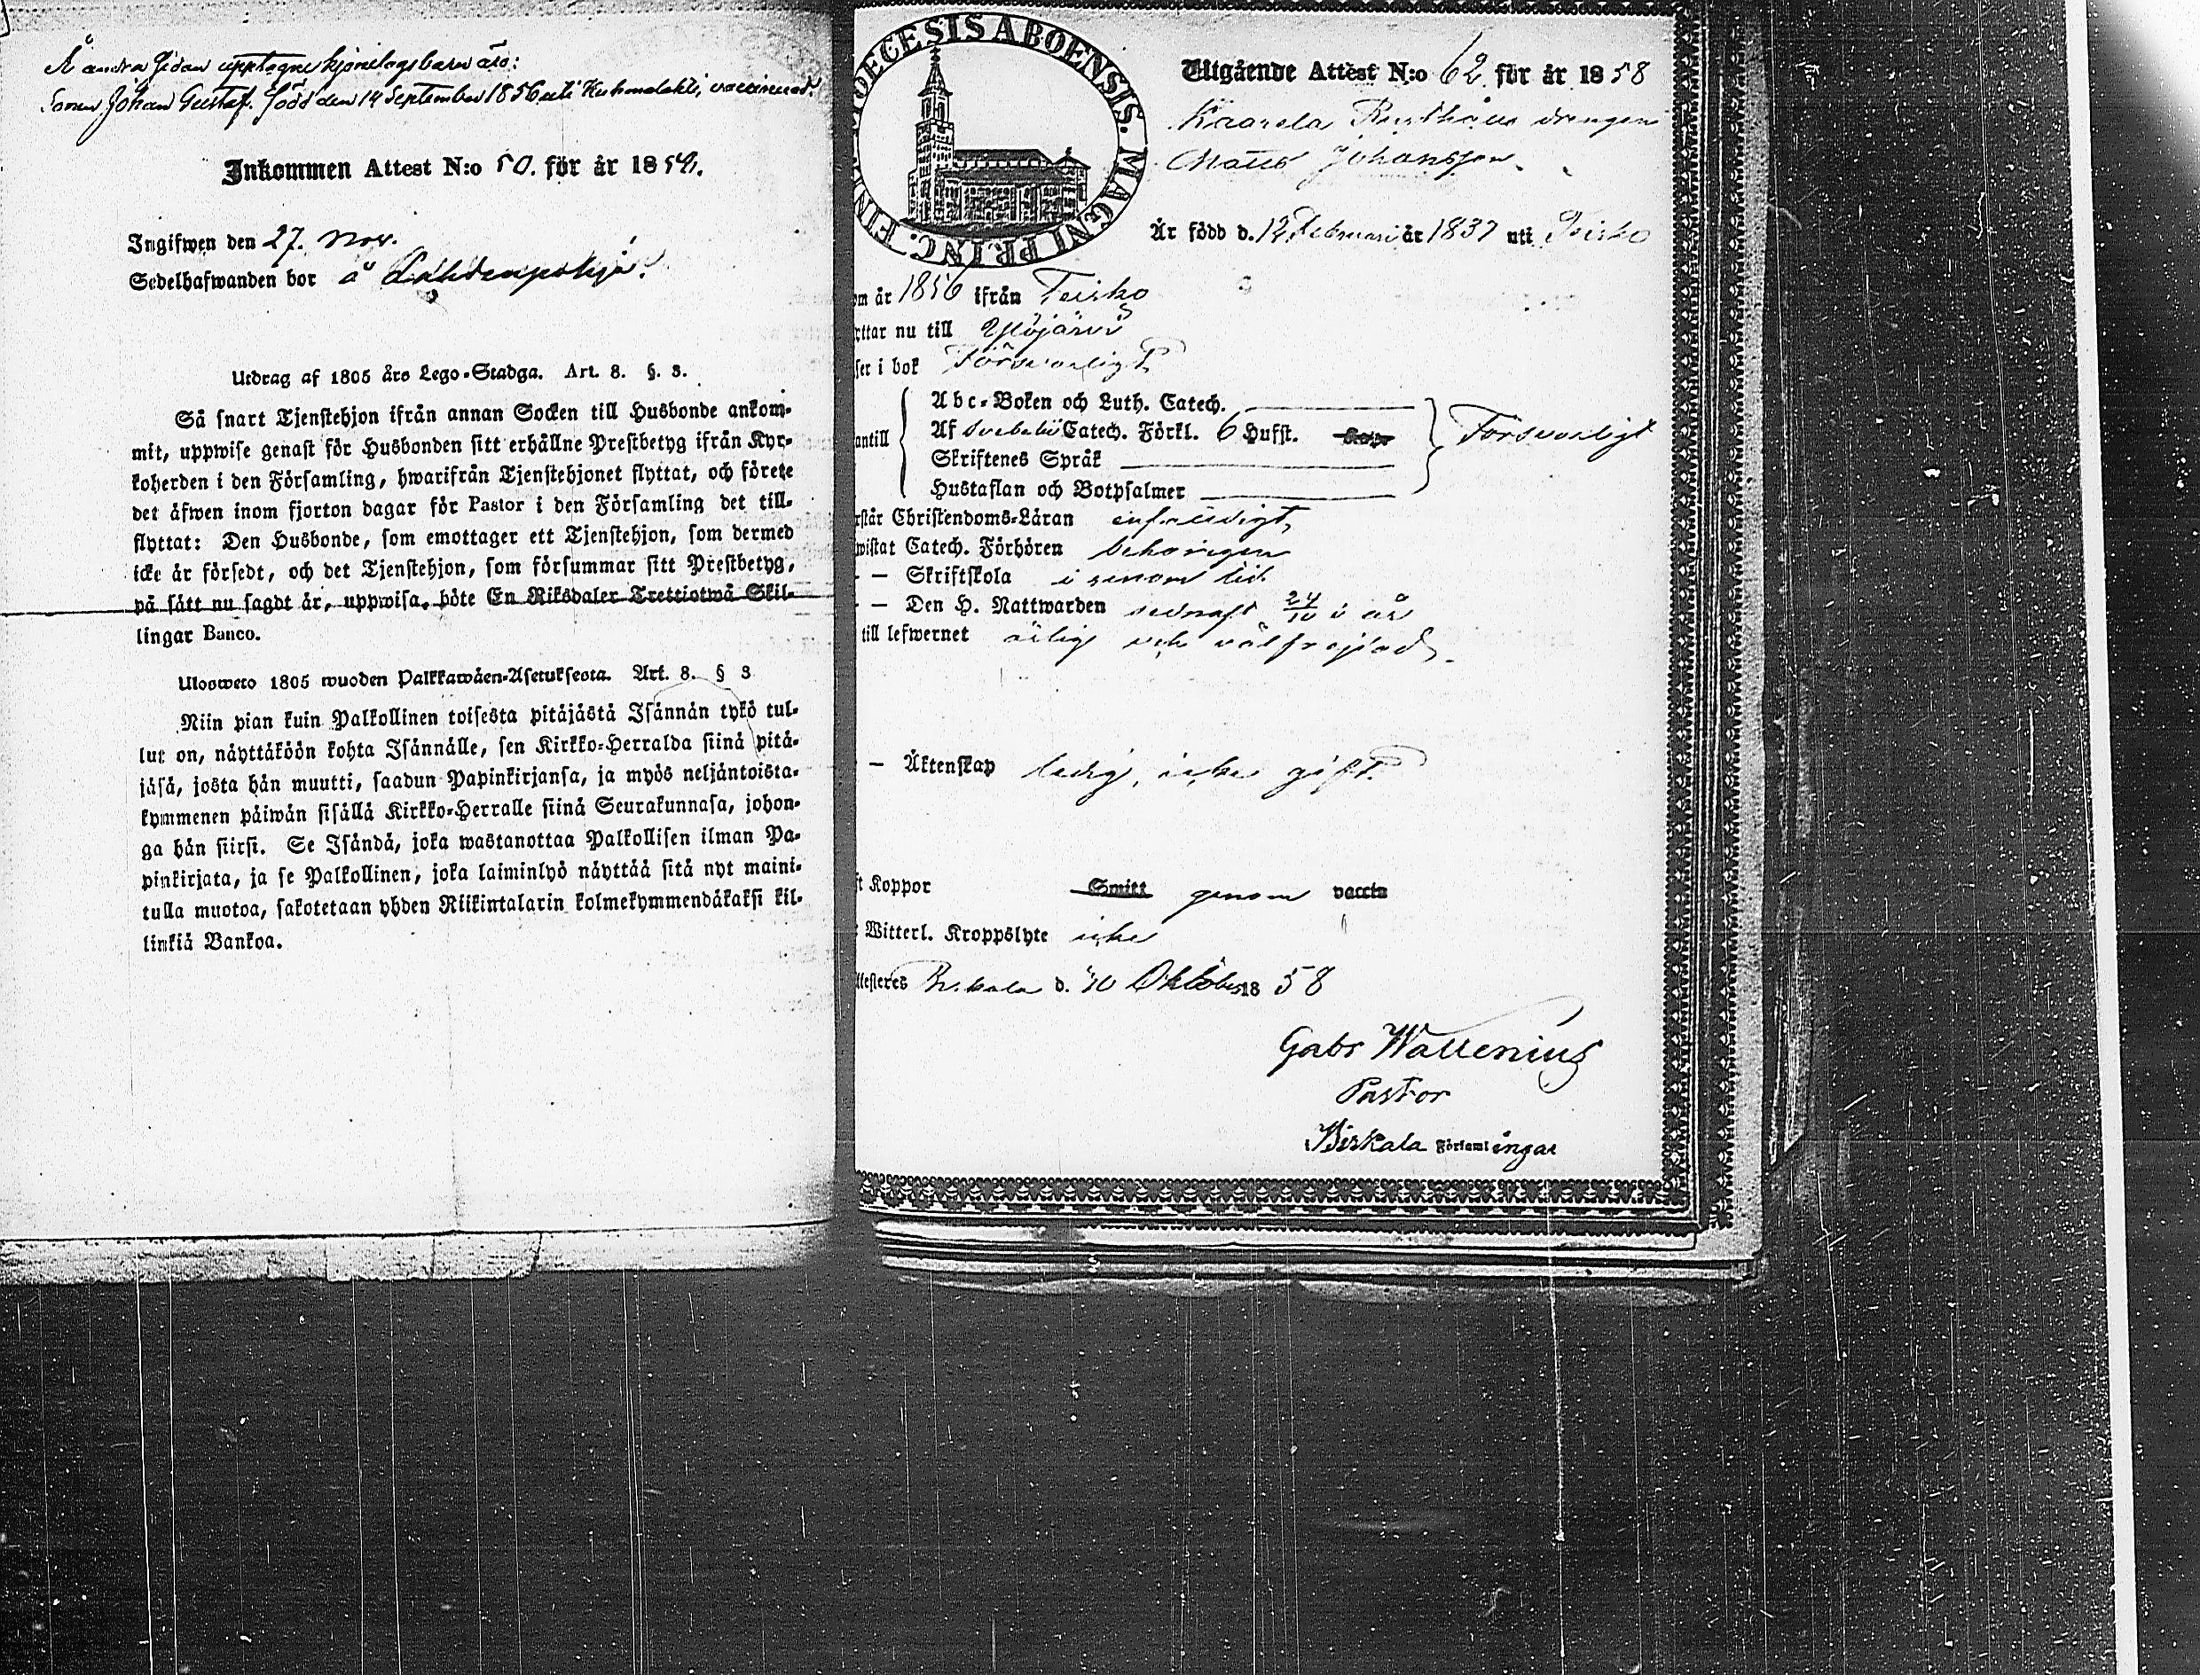 Å andra sidan upptagne hjonelagsbarn äro:
Sonen Johan Gustaf. född den 14 September 1856 uti Kuhmalahti, vaccinerad.
Inkommen Attest N:o 50. för år 1859.
Ingifwen den 27. Nov.
Sedelhafwanden bor å Lahdenpohja.
Utdrag af 1805 års Lego-Stadga. Art. 8. §. 3.
Så snart Tjenstehjon ifrån annan Socken till Husbonde ankom-
mit, uppwise genast för Husbonden sitt erhållne Prestbetyg ifrån Kyr-
koherden i den Församling, hwarifrån Tjenstehjonet flyttat, och förete
det äfwen inom fjorton dagar för Pastor i den Församling det till-
flyttat: Den Husbonde, som emottager ett Tjenstehjon, som dermed
icke är försedt, och det Tjenstehjon, som försummar sitt Prestbetyg,
på sätt nu sagdt är, uppwisa, böte En Riksdaler Trettiotwå Skil-
lingar Banco.
Ulosweto 1805 wuoden Palkkawäen-Asetuksesta. Art. 8. § 3
Niin pian kuin Palkollinen toisesta pitäjästä Isännän tykö tul-
lut on, näyttäköön kohta Isännälle, sen Kirkko-Herralda siinä pitä-
jäsä, josta hän muutti, saadun Papinkirjansa, ja myös neljäntoista-
kymmenen päiwän sisällä Kirkko-Herralle siinä Seurakunnasa, johon-
ga hän siirsi. Se Isändä, joka wastanottaa Palkollisen ilman Pa-
pinkirjata, ja se Palkollinen, joka laiminlyö näyttää sitä nyt maini-
tulla muotoa, sakotetaan yhden Riikintalarin kolmekymmendäkaksi kil-
linkiä Bankoa.
DIOECESIS ABOENSIS. MAGNI PRINC. FIN
Utgående Attest N:o 62 för år 1858
Kaarela Rusthålls drängen
Matts Johansson.
Är född d. 12 Februari år 1837 uti Teisko
om år 1856 ifrån Teisko
yttar nu till Ylöjärvi
ser i bok Försvarligt
Abc-Boken och Luth. Catech.
antill Af Svebelii Catech. Förkl. 6 Hufst. Försvarligt
Skriftenes Språk
Hustaflan och Botpsalmer
rstår Christendoms-Läran enfaldigt,
wistat Catech. Förhören behörigen
- — Skriftskola i sinom tid
- — Den H. Nattwarden sednast 24/10 i år
till lefwernet ärlig och välfrejdad.
— Äktenskap ledig, icke gift.
ft Koppor Smitt genom vaccin
Witterl. Kroppslyte icke
ttesteres Birkala d. 30 Oktober 1858
Gabr Wallenius
Pastor
Birkala Församlingar